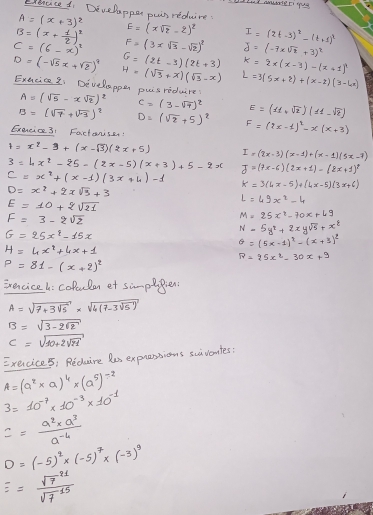 Exercice 1: Développer puis réduire:
A = (x + 3)²
B = (x + 1/2)²
C = (6 - x)²
D = (-√5 x + √2)²
E = (x√2 - 2)²
F = (3x√3 - √2)²
G = (2t - 3)(2t + 3)
H = (√3 + x)(√3 - x)
I = (2t - 3)² - (t + 1)²
J = (-7x√7 + 3)²
K = 2x(x - 3) - (x + 1)²
L = 3(5x + 2) + (x - 2)(3 - 4x)
Exercice 2: Développer puis réduire:
A = (√5 - x√2)²
B = (√7 + √3)²
C = (3 - √7)²
D = (√2 + 5)²
E = (11 + √2)(11 - √2)
F = (2x - 1)² - x(x + 3)
Exercice 3: Factoriser:
A = x² - 3 + (x - √3)(2x + 5)
B = 4x² - 25 - (2x - 5)(x + 3) + 5 - 2x
C = x² + (x - 1)(3x + 4) - 1
D = x² + 2x√3 + 3
E = 10 + 2√21
F = 3 - 2√2
G = 25x² - 15x
H = 4x² + 4x + 1
P = 81 - (x + 2)²
I = (2x - 3)(x - 1) + (x - 1)(5x - 7)
J = (7x - 6)(2x + 1) - (2x + 1)²
K = 3(4x - 5) + (4x - 5)(3x + 6)
L = 49x² - 4
M = 25x² - 70x + 49
N = 5y² + 2xy√5 + x²
Q = (5x - 1)² - (x + 3)²
R = 25x² - 30x + 9
Exercice 4: Calculer et simplifier:
A = √(7 + 3√5) × √(4(7 - 3√5))
B = √(3 - 2√2)
C = √(10 + 2√21)
Exercice 5: Réduire les expressions suivantes:
A = (a² × a)⁴ × (a⁵)⁻²
B = 10⁻⁷ × 10⁻³ × 10⁻¹
C = (a² × a³) / a⁻⁴
D = (-5)² × (-5)⁷ × (-3)⁹
E = √7²¹ / √7¹⁵